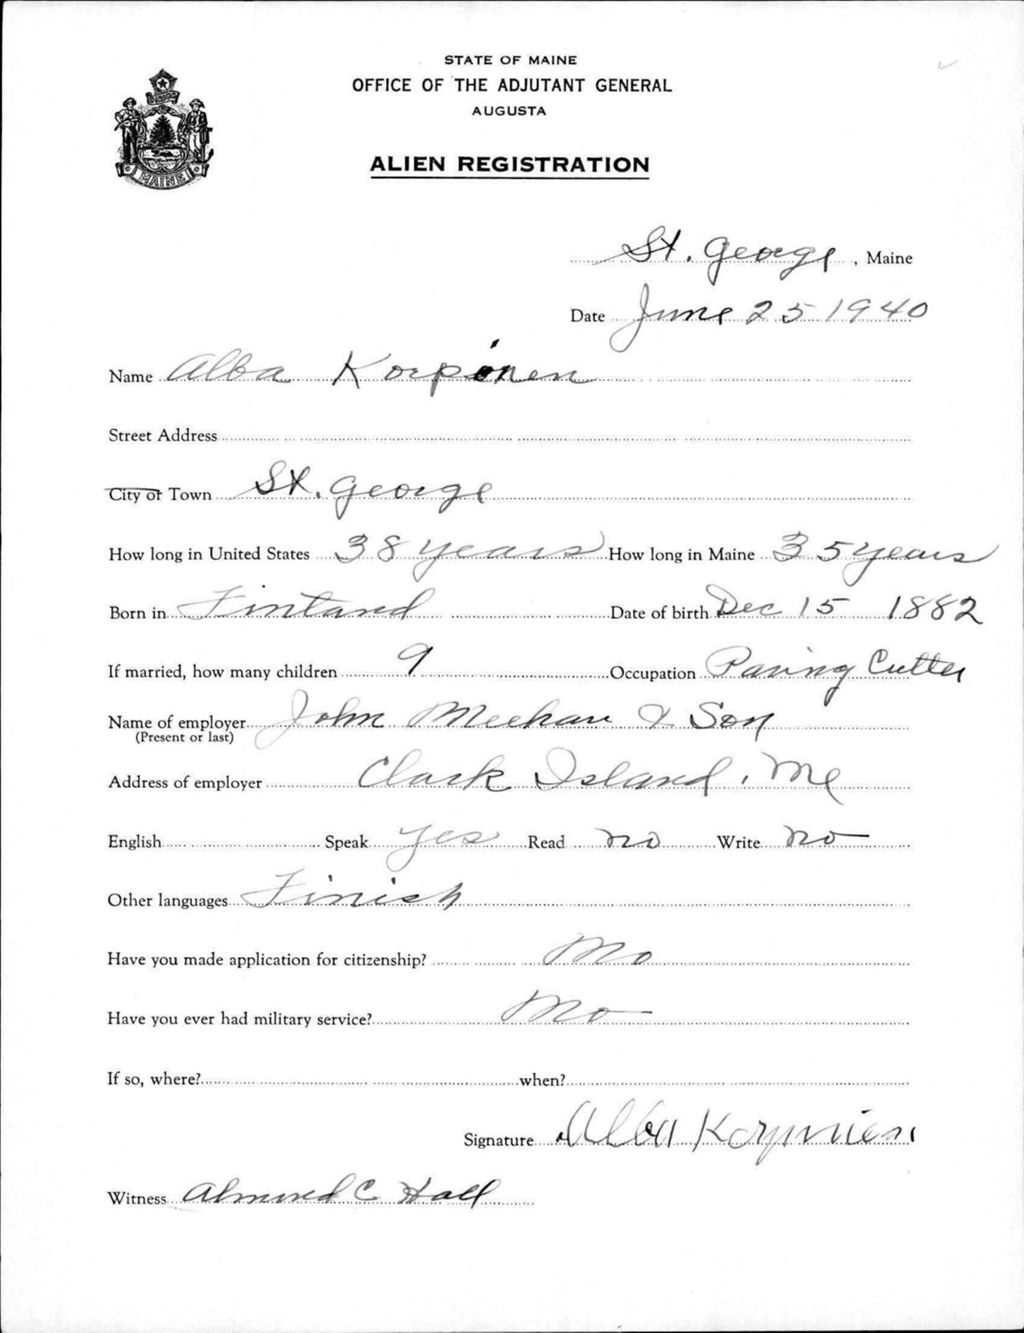 STATE OF MAINE
OFFICE OF THE ADJUTANT GENERAL
AUGUSTA
MAINE
ALIEN REGISTRATION
St. George, Maine
Date June 25 1940
Name Alba Korpinen
Street Address
City or Town St. George
How long in United States 38 years How long in Maine 35 years
Born in Finland Date of birth Dec 15 1882
If married, how many children 9 Occupation Paving Cutter
Name of employer John Meehan & Son
(Present or last)
Address of employer Clark Island, Me
English Speak Yes Read no Write no
Other languages Finish
Have you made application for citizenship? No
Have you ever had military service? No
If so, where? when?
Signature Alba
Witness Almond C Hall